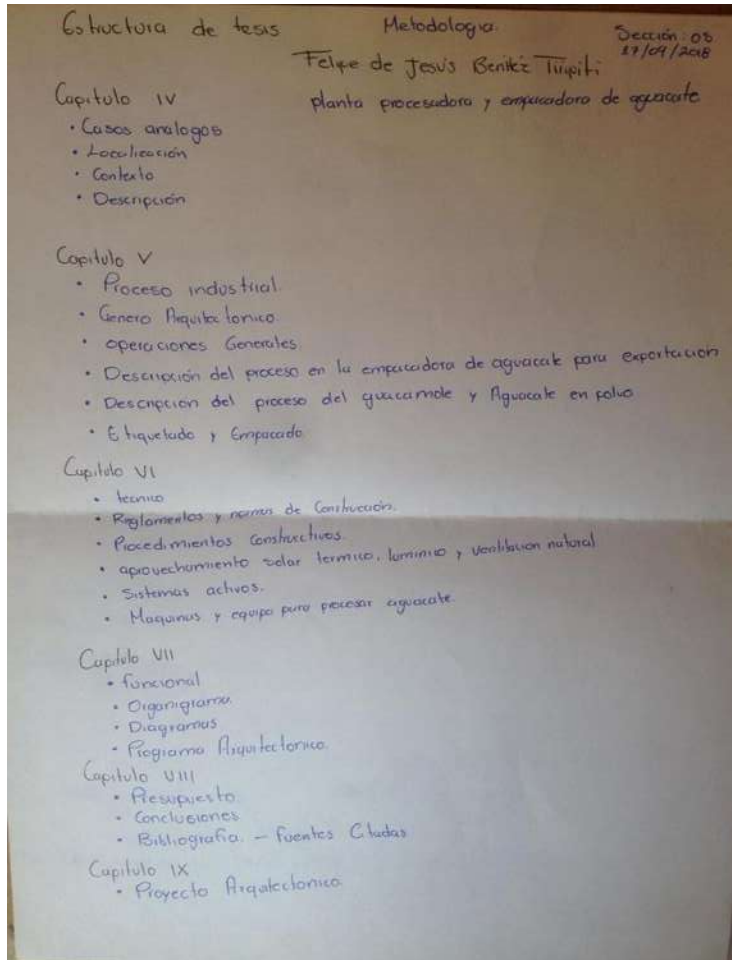 Estructura de tesis Metodologia. Sección: 08
17/09/2018
Felipe de Jesús Benítez
Capitulo IV planta procesadora y empacadora de aguacate
• Casos analogos
• Localización
• Contexto
• Descripción
Capitulo V
• Proceso industrial.
• Genero Arquitectonico.
• operaciones Generales.
• Descripción del proceso en la empacadora de aguacate para exportación
• Descripcion del proceso del guacamole y Aguacate en polvo
• Etiquetado y Empacado.
Capitulo VI
• tecnico
• Reglamentos y normas de Construcción.
• Procedimientos Constructivos.
• aprovechamiento solar termico, luminico y ventilacion natural
• Sistemas activos.
• Maquinas y equipo para procesar aguacate.
Capitulo VII
• funcional
• Organigrama.
• Diagramas
• Programa Arquitectonico.
Capitulo VIII
• Presupuesto.
• Conclusiones
• Bibliografia. – fuentes Citadas
Capitulo IX
• Proyecto Arquitectonico.